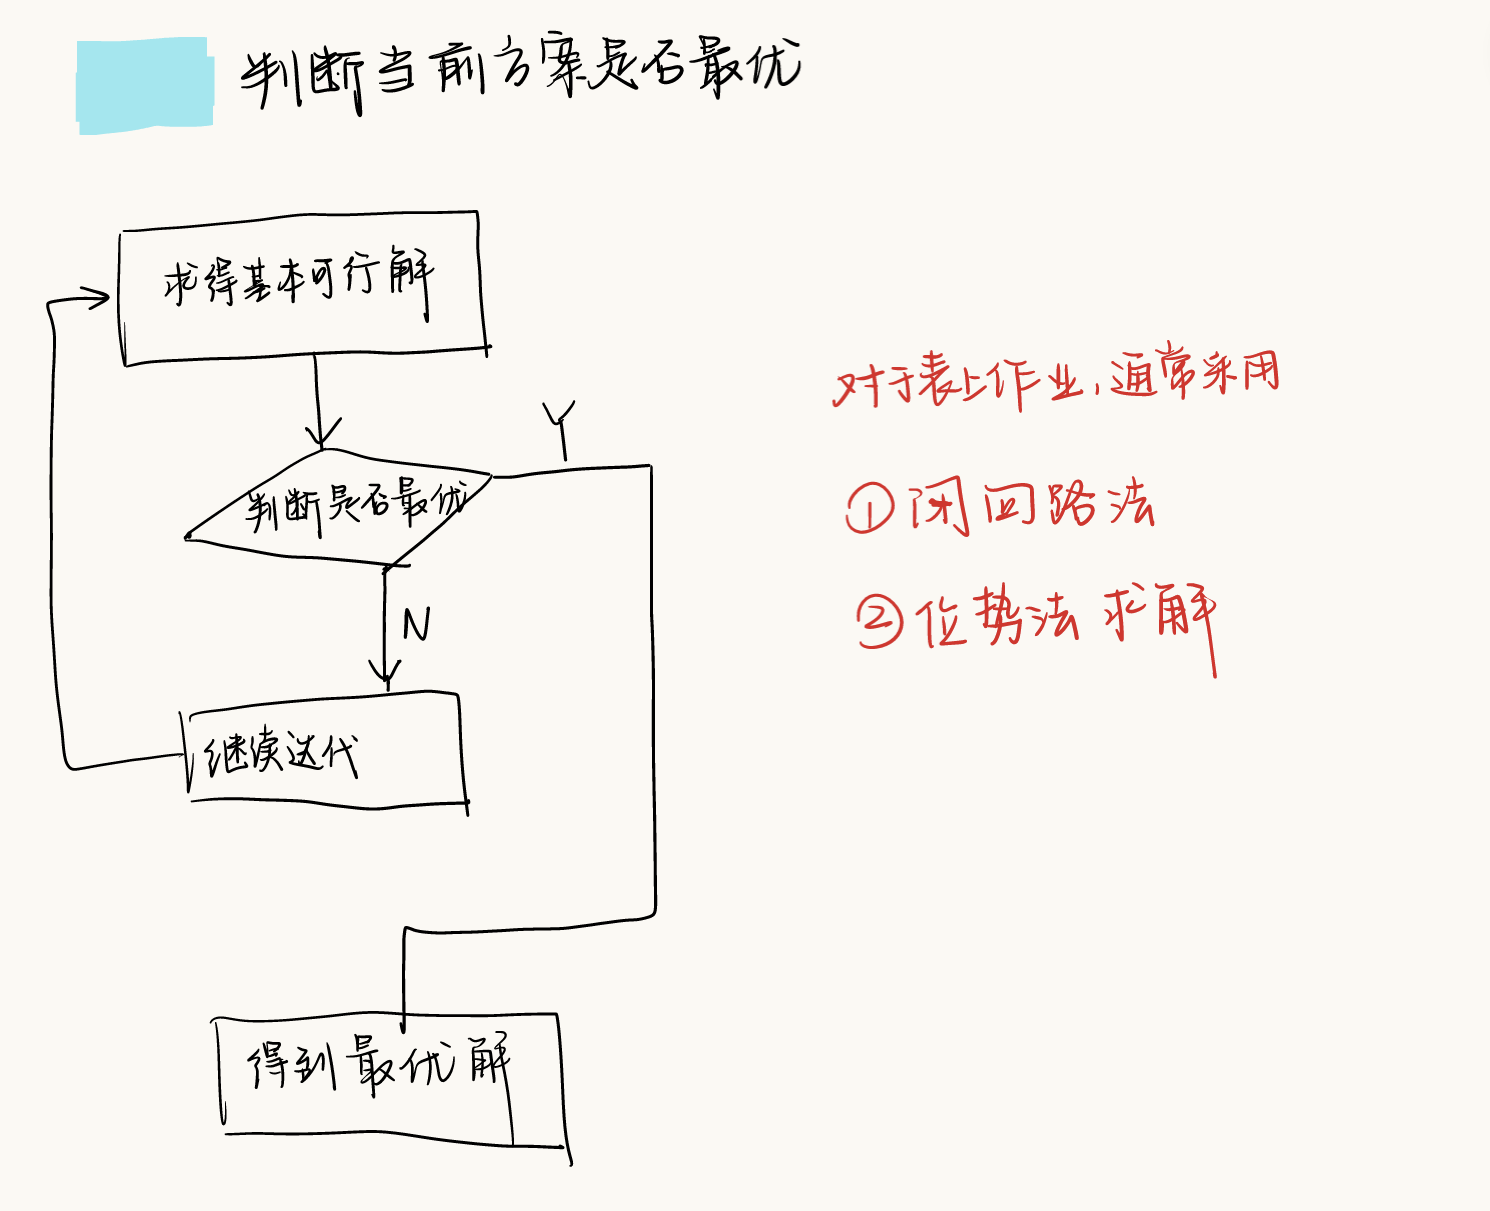 判断当前方案是否最优
求得基本可行解
判断是否最优
Y
N
继续迭代
得到最优解
对于表上作业,通常采用
①闭回路法
②位势法求解